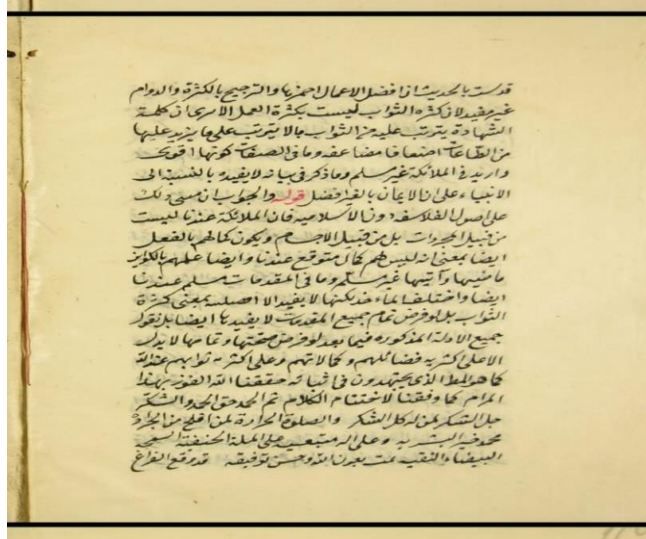 قد ست بالحديث ان افضل الاعمال احمزها والترجيح بالكثرة والدوام
غير مفيد لان كثرة الثواب ليست بكثرة العمل الا يرى ان كلمة
الشهادة يترتب عليه من الثواب مالا يترتب على ما يزيد عليها
من الطاعات اضعافا مضاعفه وما فى الصفات كونها اقوى
وازيد فى الملائكة غير مسلم وما ذكر فى بيانه لا يفيد وبالنسبة الى
الانبياء على ان الايمان بالغير افضل قوله والجواب ان مبنى ذلك
على اصول الفلاسفه دون الاسلاميه فان الملائكة عندنا ليست
من قبيل المجردات بل من قبيل الاجسام ويكون كمالهم بالفعل
ايضا بمعنى انه ليس لهم كمال متوقع عندنا وايضا علمهم بالكوائن
ماضيها وآتيها غير مسلم وما فى المقدمات مسلم عندنا
ايضا واختلف لكنها لا يفيد الا افضلية بمعنى كثرة
الثواب بل لو فرض تمام جميع المقدمات لا يفيدها ايضا بل نقول
جميع الادلة المذكوره فيما بعد لو فرض صحتها وتمامها لا يدل
الا على اكثريه فضائلهم وكمالاتهم وعلى اكثريه ثوابهم عند الله
كما هو المط الذى يجتهدون فى اثباته حققنا الله الفوز بهذا
المرام كما وفقنا لاختتام الكلام ثم الحمد حق الحمد والشكر
جل الشكر لمن له كل الشكر والصلوة على
محمد خير البشريه وعلى اله متبعيه على الملة الحنفية السمحه
البيضاء النقيه تمت بعون الله وحسن توفيقه قد وقع الفراغ